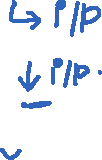 ↳ i/p
↓ i/p.